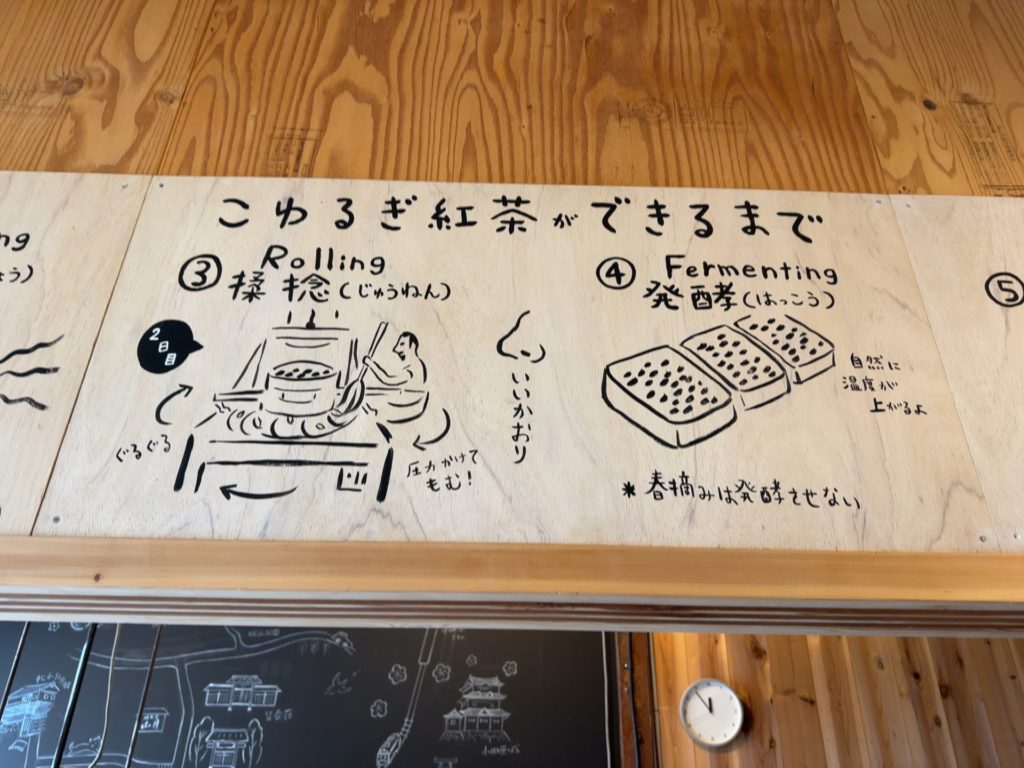 こゆるぎ紅茶ができるまで
ng
ょう)
③ Rolling
揉捻(じゅうねん)
2日目
ぐるぐる
圧力かけて
もむ!
いいかおり
④ Fermenting
発酵(はっこう)
自然に
温度が
上がるよ
*春摘みは発酵させない
⑤